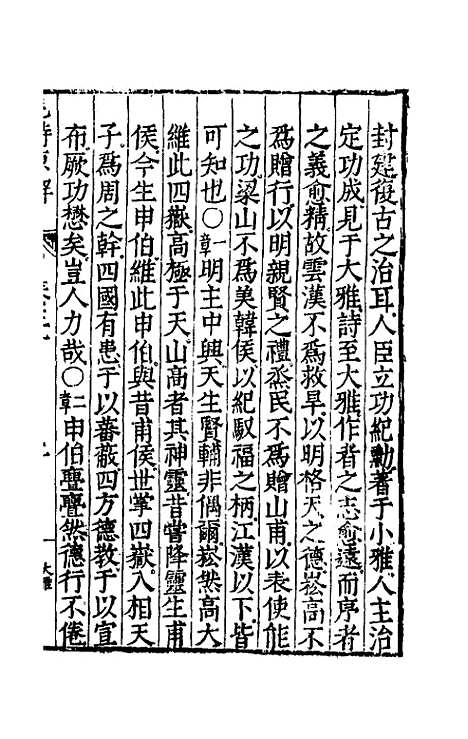 封建復古之治耳人臣立功紀勳著于小雅人主治
定功成見于大雅詩至大雅作者之志愈遠而序者
之義愈精故雲漢不爲救旱以明格天之德崧高不
爲贈行以明親賢之禮烝民不爲贈山甫以表使能
之功梁山不爲美韓侯以紀馭福之柄江漢以下皆
可知也〇一章明主中興天生賢輔非偶爾崧然高大
維此四嶽高極于天山高者其神靈昔嘗降靈生甫
侯今生申伯維此申伯與昔甫侯世掌四嶽入相天
子爲周之幹四國有患于以蕃蔽四方德教于以宣
布厥功懋矣豈人力哉〇二章申伯亹亹然德行不倦
詩 解
大雅